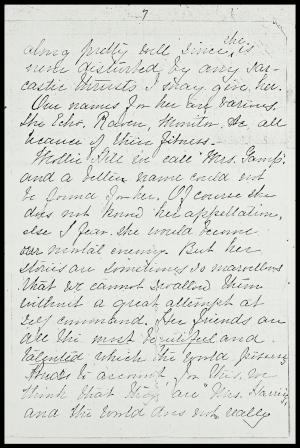 7
along pretty well since she is
never disturbed by any sar-
castic thrusts I may give her.
Our names for her are various,
The Echo, Raven, Monitor &c all
because of their fitness.
Mollie Gill call "Mrs. Gamp"
and a better name could not
be found for her. Of course she
does not know her appellation,
else I fear she would become
our mortal enemy. But her
stories are sometimes so marvellous
that we cannot swallow them
without a great attempt at
self command. Her friends are
all the most beautiful and
talented which the world
to account for this, we
think that they are "Mrs. Harris"
and the world does not really